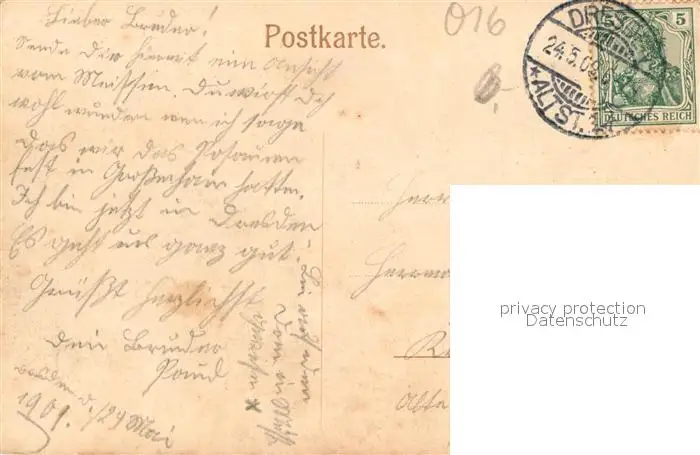 Postkarte.
016
DRESDEN
24.5.09
*ALTST. 14
5
DEUTSCHES REICH
Lieber Bruder!
Sende Dir hiermit eine Ansicht
von Meissen. Du wirst Dich
wohl wundern wen ich sage
das wir das Posaunen
fest in Großenhain hatten.
Ich bin jetzt in Dresden
Es geht uns ganz gut!
Grüßt herzlichst
Dein Bruder
Paul
Dresden d. 24 Mai
1909.
Herr
Herrma
Alte
privacy protection
Datenschutz